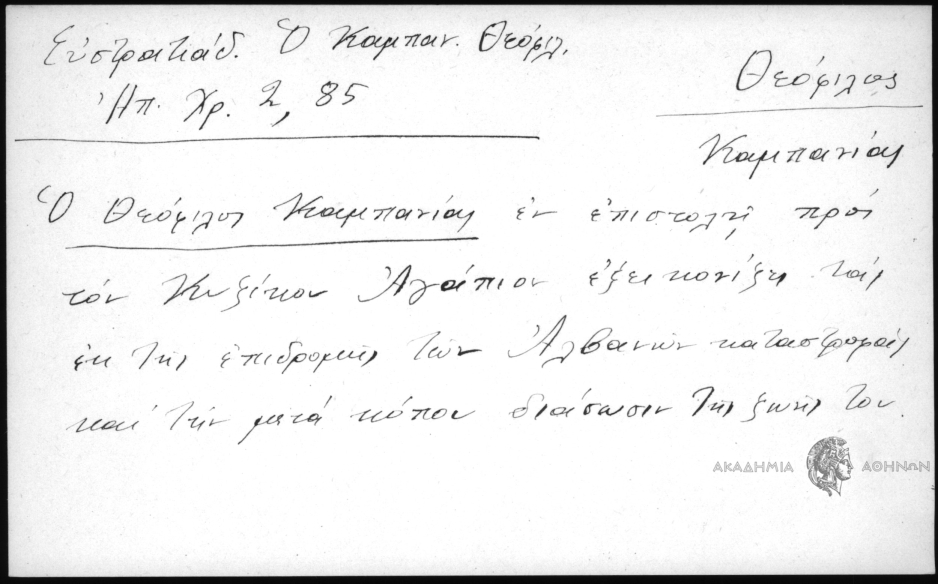 Εὐστρατιάδ. Ὁ Καμπαν. Θεόφιλ.
Ἠπ. Χρ. 2, 85
Θεόφιλος
Καμπανίας
Ὁ Θεόφιλος Καμπανίας ἐν ἐπιστολῇ πρός
τόν Κυζίκου Ἀγάπιον ἐξεικονίζει τάς
ἐκ τῆς ἐπιδρομῆς τῶν Ἀλβανῶν καταστροφάς
καί τήν μετά κόπου διάσωσιν τῆς ζωῆς του.
ΑΚΑΔΗΜΙΑ ΑΘΗΝΩΝ